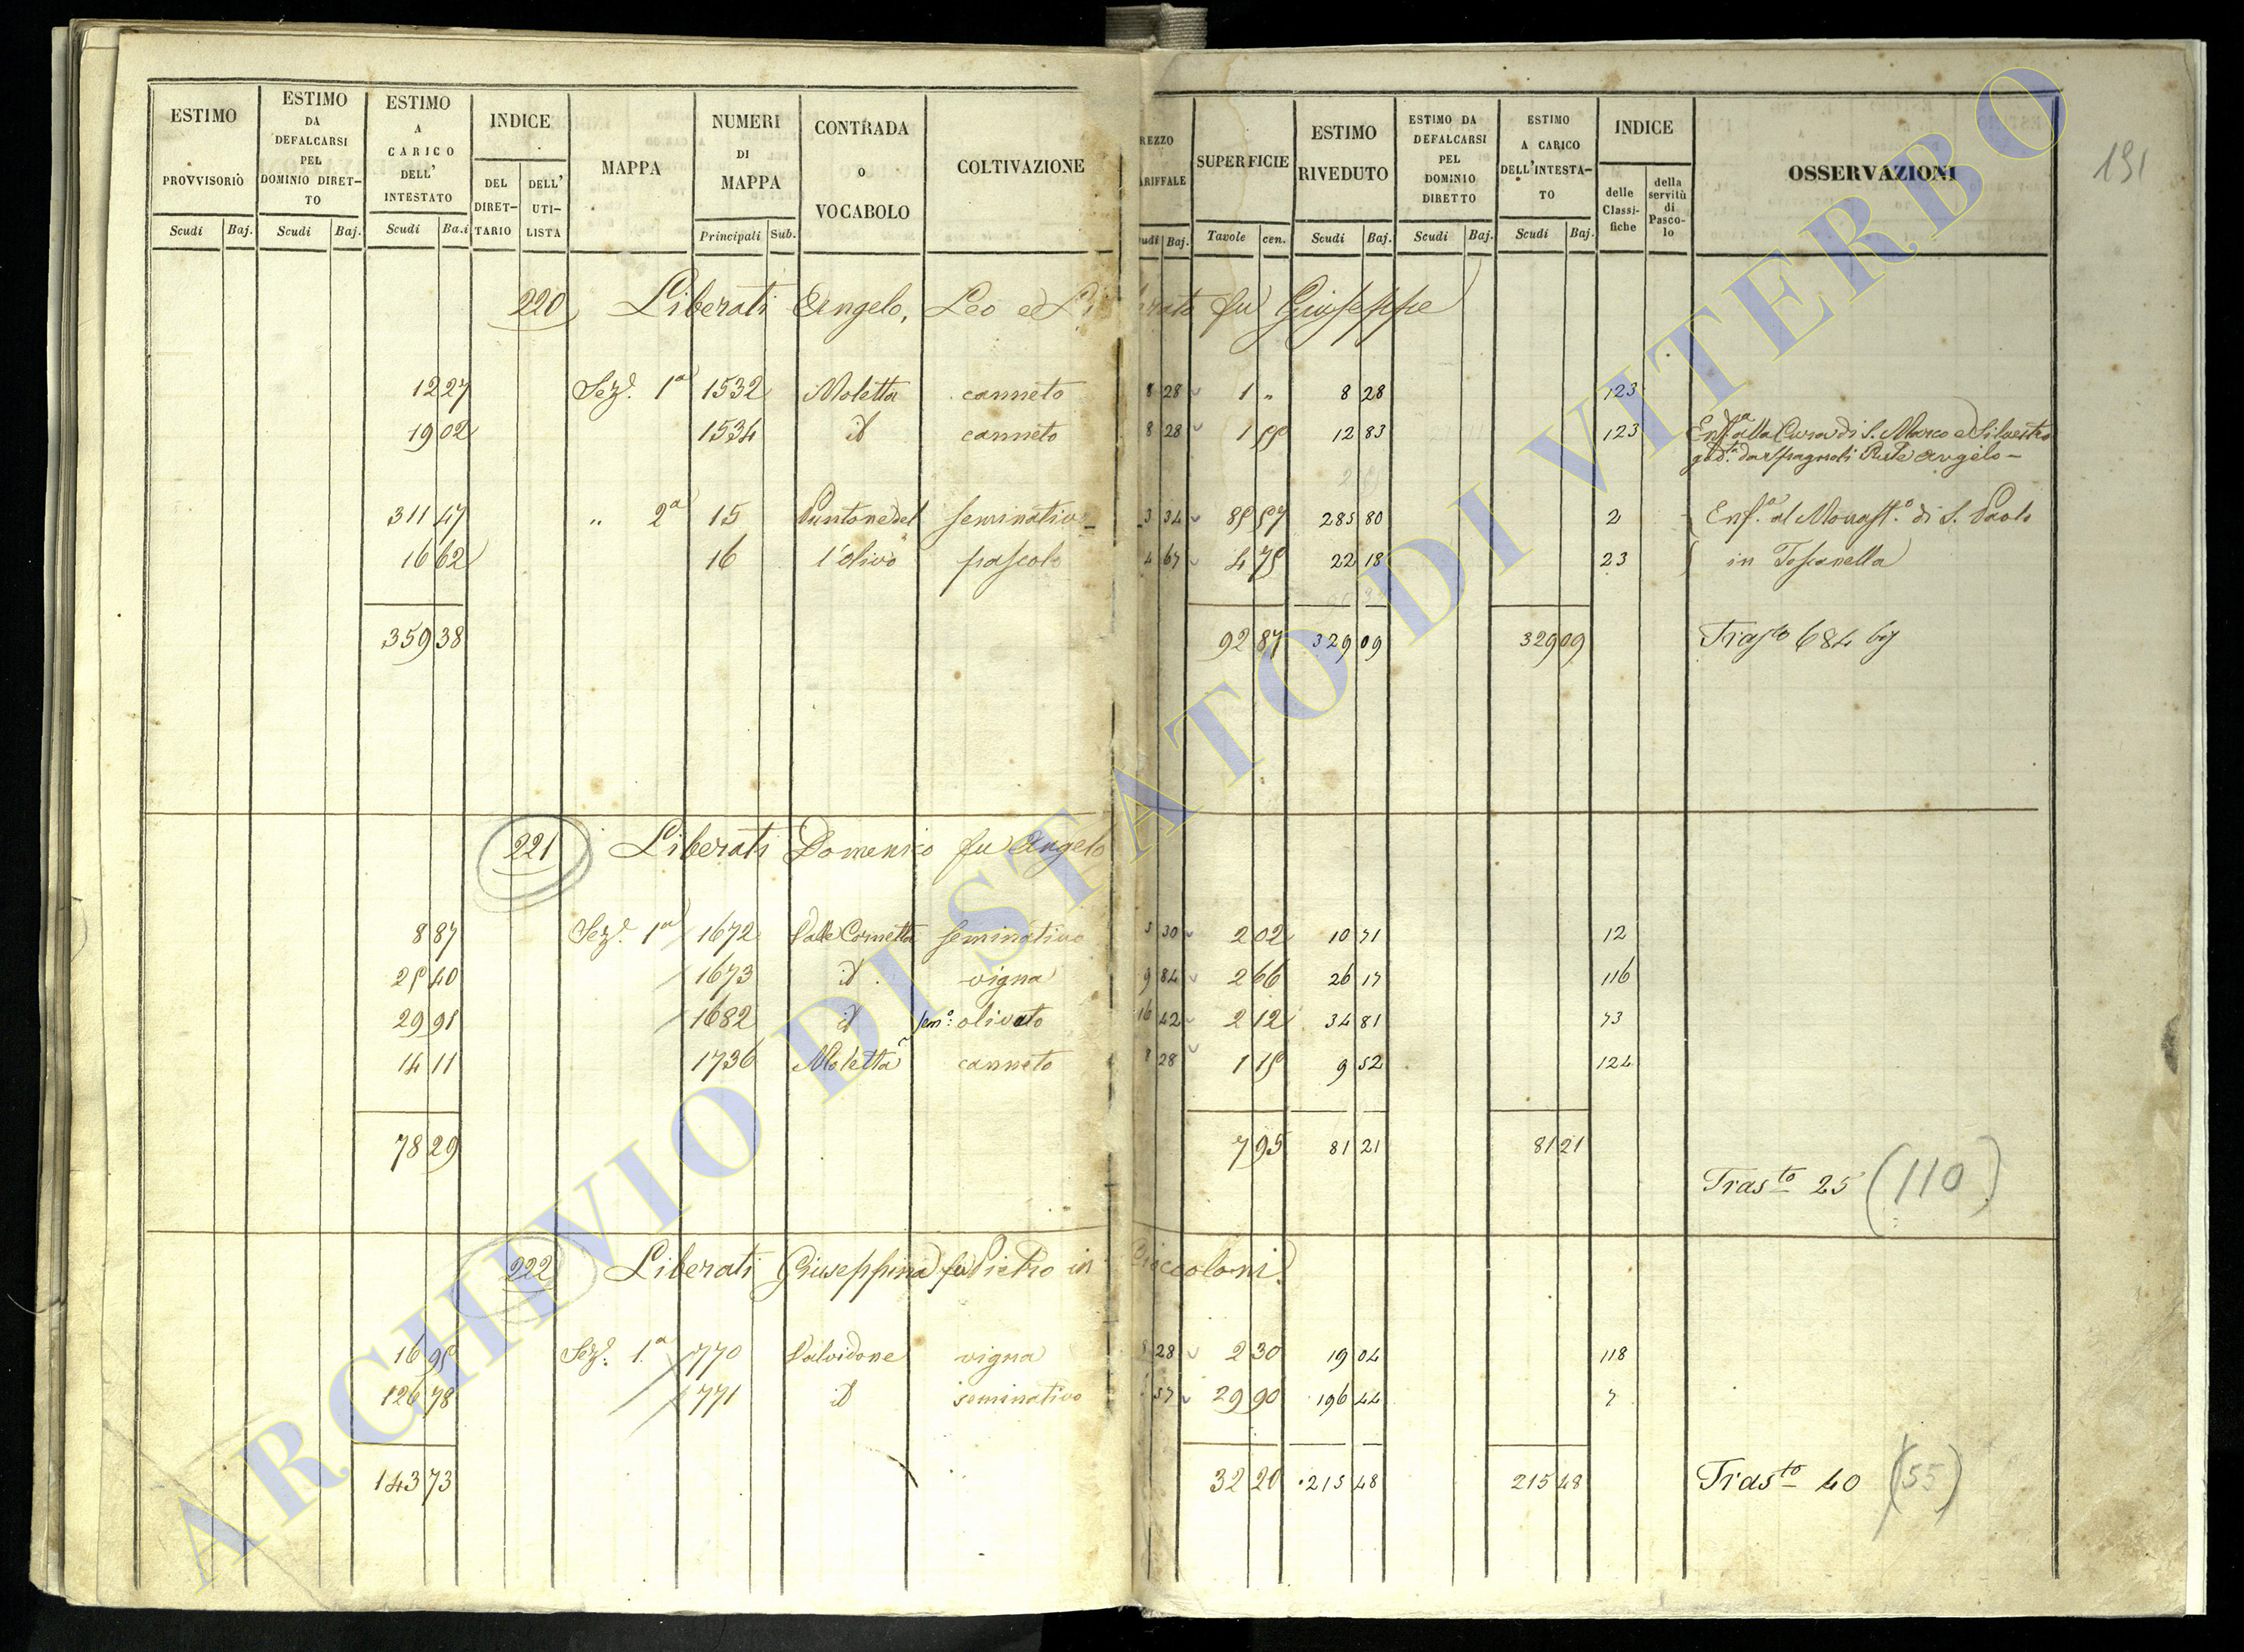 ESTIMO PROVVISORIO Scudi Baj.
ESTIMO DA DEFALCARSI PEL DOMINIO DIRET-TO Scudi Baj.
ESTIMO A CARICO DELL' INTESTATO Scudi Ba.i
INDICE DEL DIRET-TARIO DELL' UTI-LISTA
MAPPA
NUMERI DI MAPPA Principali Sub.
CONTRADA O VOCABOLO
COLTIVAZIONE
REZZO ARIFFALE udi Baj.
SUPERFICIE Tavole cen.
ESTIMO RIVEDUTO Scudi Baj.
ESTIMO DA DEFALCARSI PEL DOMINIO DIRETTO Scudi Baj.
ESTIMO A CARICO DELL'INTESTA-TO Scudi Baj.
INDICE delle Classi-fiche della servitù di Pasco-lo
OSSERVAZIONI
191
220 Liberati Angelo, Leo e Liberato fu Giuseppe
12 27 Sez.e 1a 1532 Moletta canneto 8 28 1 " 8 28 123
19 02 1534 id canneto 8 28 1 55 12 83 123 Enf.a alla Cura di S. Marco e Silvestro
god.ta da Spagnoli Rete Angelo
311 47 " 2a 15 Puntone del seminativo 3 34 85 57 285 80 2 Enf.a al Monast.o di S. Paolo
16 62 16 l'olivo pascolo 4 67 4 75 22 18 23 in Toscanella
359 38 92 87 329 09 329 09 Trasto 684 bg
221 Liberati Domenico fu Angelo
8 87 Sez.e 1a 1672 Valle Cornetta seminativo 5 30 2 02 10 71 12
25 40 1673 id vigna 9 84 2 66 26 17 116
29 91 1682 id sem.o olivato 16 42 2 12 34 81 73
14 11 1736 Moletta canneto 8 28 1 15 9 52 124
78 29 7 95 81 21 81 21
Trasto 25 (110)
222 Liberati Giuseppina fu Pietro in Cioccoloni
16 95 Sez.e 1.a 770 Valvidone vigna 8 28 2 30 19 04 118
126 78 771 id seminativo 57 29 90 196 44 7
143 73 32 20 215 48 215 48 Trasto 40 (55)
ARCHIVIO DI STATO DI VITERBO